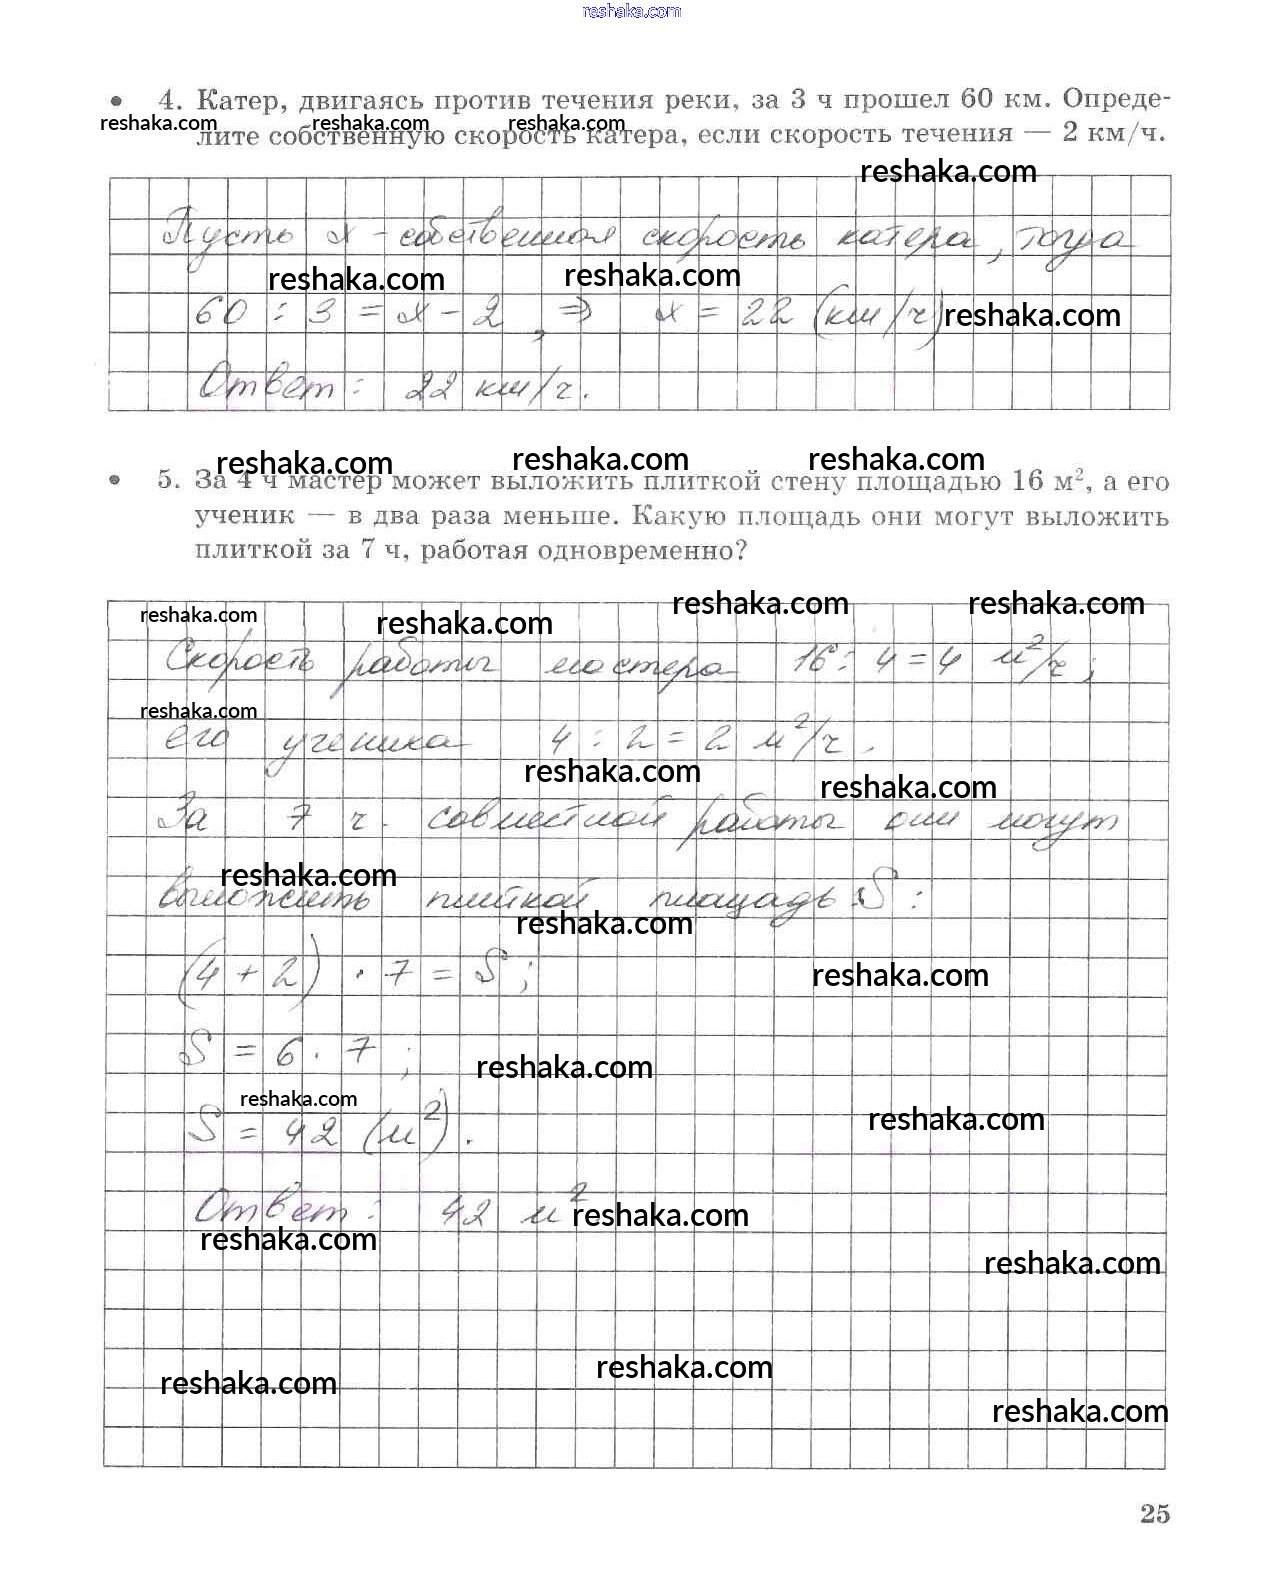 reshaka.com
• 4. Катер, двигаясь против течения реки, за 3 ч прошел 60 км. Опреде-
reshaka.com reshaka.com reshaka.com
лите собственную скорость катера, если скорость течения — 2 км/ч.
reshaka.com
Пусть x - собственная скорость катера, тогда
reshaka.com reshaka.com
60 : 3 = x - 2, ⇒ x = 22 (км/ч) reshaka.com
Ответ: 22 км/ч.
reshaka.com reshaka.com reshaka.com
• 5. За 4 ч мастер может выложить плиткой стену площадью 16 м², а его
ученик — в два раза меньше. Какую площадь они могут выложить
плиткой за 7 ч, работая одновременно?
reshaka.com reshaka.com reshaka.com reshaka.com
Скорость работы мастера 16 : 4 = 4 м²/ч;
reshaka.com
его ученика 4 : 2 = 2 м²/ч.
reshaka.com reshaka.com
За 7 ч. совместной работы они могут
reshaka.com
выложить плиткой площадь S:
reshaka.com
(4 + 2) · 7 = S; reshaka.com
S = 6 · 7;
reshaka.com
reshaka.com reshaka.com
S = 42 (м²).
Ответ: 42 м² reshaka.com
reshaka.com
reshaka.com
reshaka.com reshaka.com
reshaka.com
25